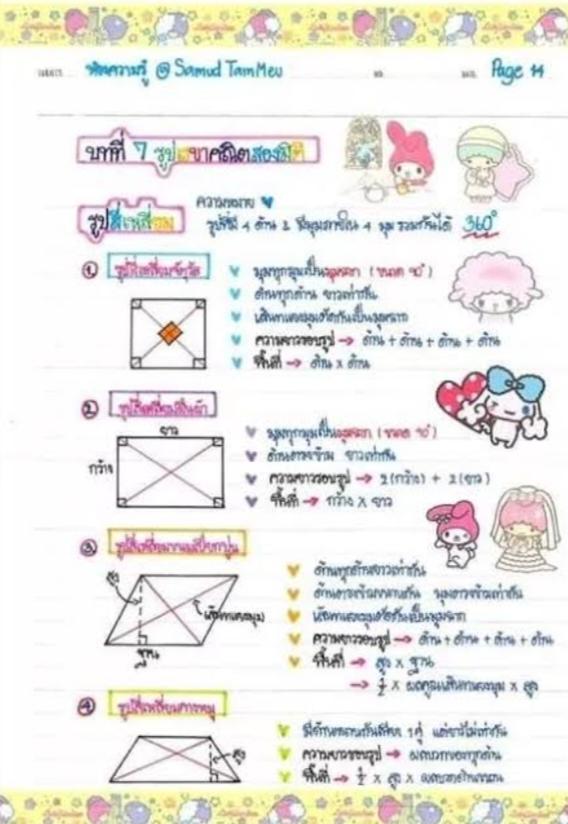 คลังความรู้ @ Samud Tam Meu Page 14
บทที่ 7 รูปเรขาคณิตสองมิติ
ความหมาย
รูปสี่เหลี่ยม รูปที่มี 4 ด้าน & มีมุมภายใน 4 มุม รวมกันได้ 360°
① รูปสี่เหลี่ยมจัตุรัส
มุมทุกมุมเป็นมุมฉาก (ขนาด 90°)
ด้านทุกด้าน ยาวเท่ากัน
เส้นทแยงมุมตัดกันเป็นมุมฉาก
ความยาวรอบรูป → ด้าน + ด้าน + ด้าน + ด้าน
พื้นที่ → ด้าน x ด้าน
② รูปสี่เหลี่ยมผืนผ้า
ยาว
กว้าง
มุมทุกมุมเป็นมุมฉาก (ขนาด 90°)
ด้านตรงข้าม ยาวเท่ากัน
ความยาวรอบรูป → 2(กว้าง) + 2(ยาว)
พื้นที่ → กว้าง x ยาว
③ รูปสี่เหลี่ยมขนมเปียกปูน
สูง
เส้นทแยงมุม
ฐาน
ด้านทุกด้านยาวเท่ากัน
ด้านตรงข้ามขนานกัน มุมตรงข้ามเท่ากัน
เส้นทแยงมุมตัดกันเป็นมุมฉาก
ความยาวรอบรูป → ด้าน + ด้าน + ด้าน + ด้าน
พื้นที่ → สูง x ฐาน
→ ½ x ผลคูณเส้นทแยงมุม x สูง
④ รูปสี่เหลี่ยมคางหมู
สูง
มีด้านขนานกันเพียง 1 คู่ แต่ยาวไม่เท่ากัน
ความยาวรอบรูป → ผลบวกของทุกด้าน
พื้นที่ → ½ x สูง x ผลบวกด้านขนาน